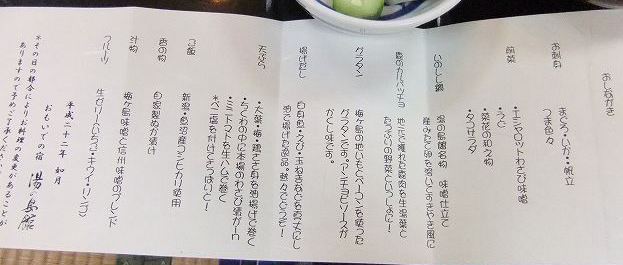 おしながき
お刺身
まぐろ・いか・帆立
つま色々
前菜
・エシャロットわさび味噌
・うど
・菜花の和え物
・タコけワタ
いのしし鍋
湯の島館名物　味噌仕立て
産みたて卵を溶いてすきやき風に
鹿のカルパッチョ
地元で穫れた鹿肉を生湯葉と
たっぷりの野菜といっしょに！
グラタン
梅ヶ島の地いもとベーコンを使った
グラタンです。アンチョビソースが
かくし味です。
揚げだし
白身魚・えび・玉ねぎなどを真丈にし
油で揚げた逸品。熱々をどうぞ！
天ぷら
・大葉・梅・鶏ささ身を油揚げで巻く
・ちくわの中に本場のわさび漬がin
・ミニトマトを生ハムで巻く
＊べに塩を付けてょっぱいと！
ご飯
新潟・魚沼産コシヒカリ使用
香の物
自家製ぬか漬け
汁物
梅ケ島味噌と信州味噌のブレンド
フルーツ
生ゼリーいちご・キウイ・リンゴ
平成二十二年　如月
おもいでの宿　湯の島館
＊その日の都合によりお料理の変更があることが
ありますので予めご了承ください